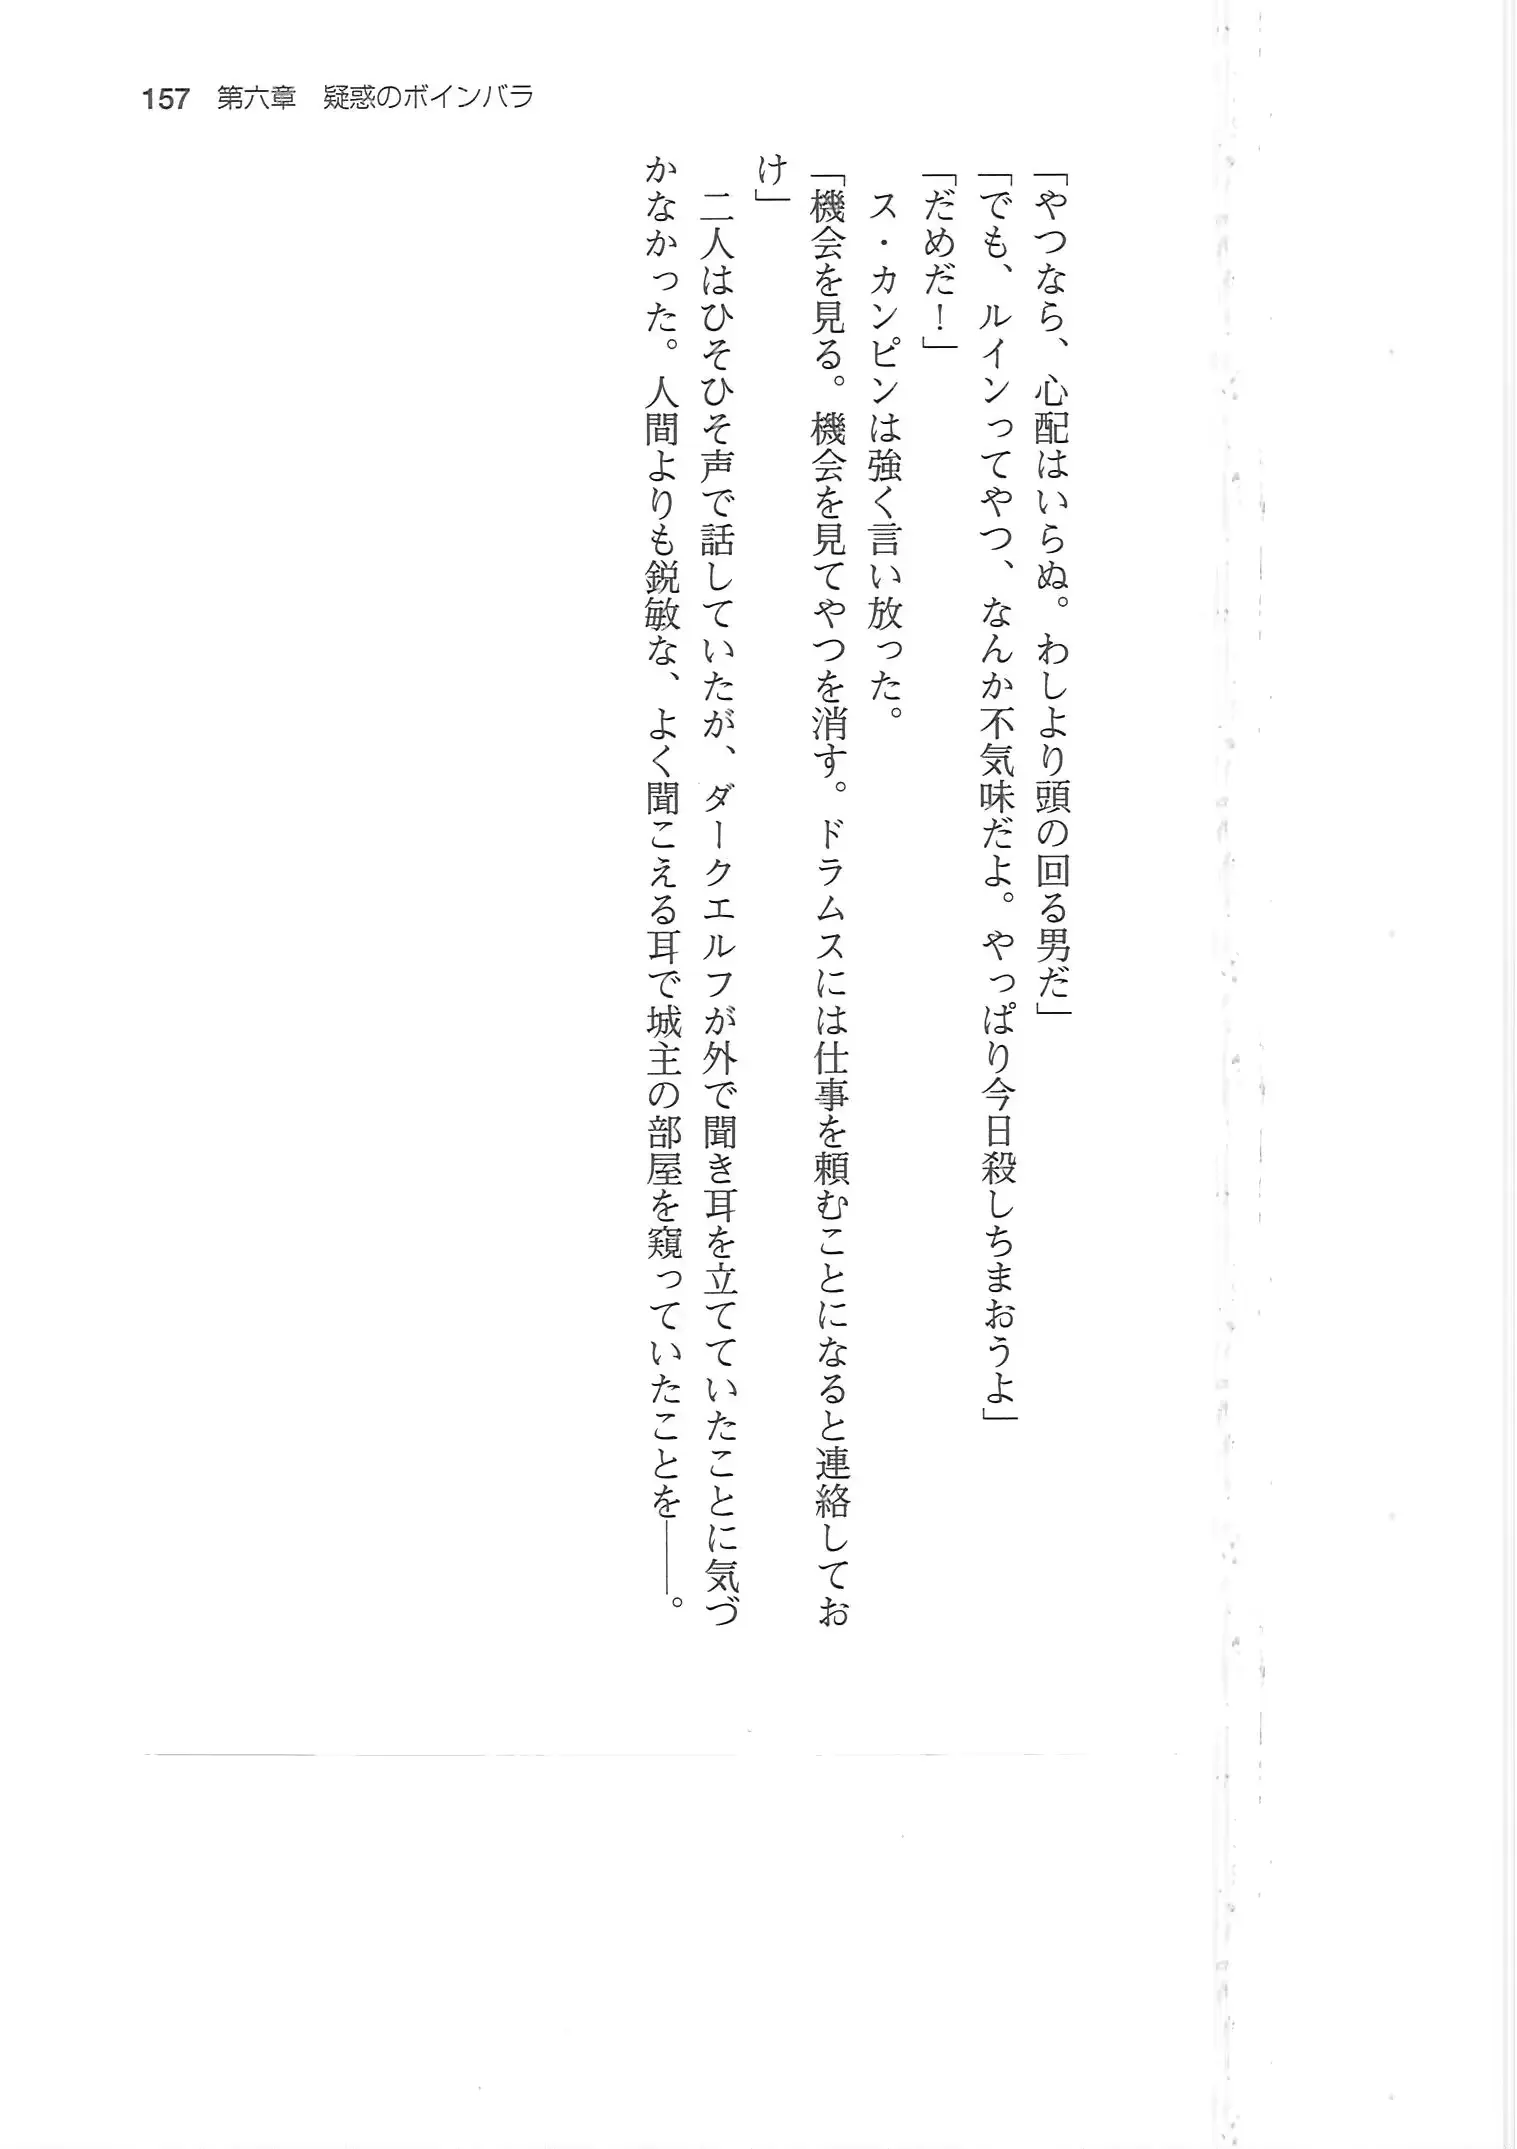 157 第六章 疑惑のボインバラ
「やつなら、心配はいらぬ。わしより頭の回る男だ」
「でも、ルインってやつ、なんか不気味だよ。やっぱり今日殺しちまおうよ」
「だめだ！」
ス・カンピンは強く言い放った。
「機会を見る。機会を見てやつを消す。ドラムスには仕事を頼むことになると連絡してお
け」
二人はひそひそ声で話していたが、ダークエルフが外で聞き耳を立てていたことに気づ
かなかった。人間よりも鋭敏な、よく聞こえる耳で城主の部屋を窺っていたことを――。